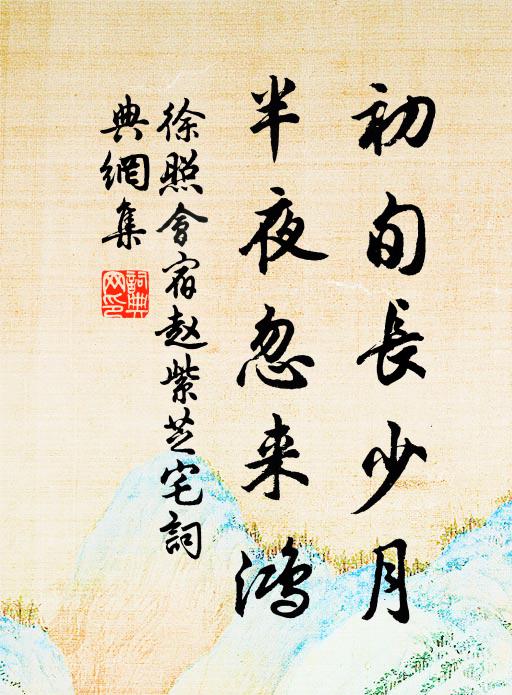 初旬長少月
半夜忽来鴻
徐照會宿赵紫芝宅詞
典網集
詞典網印